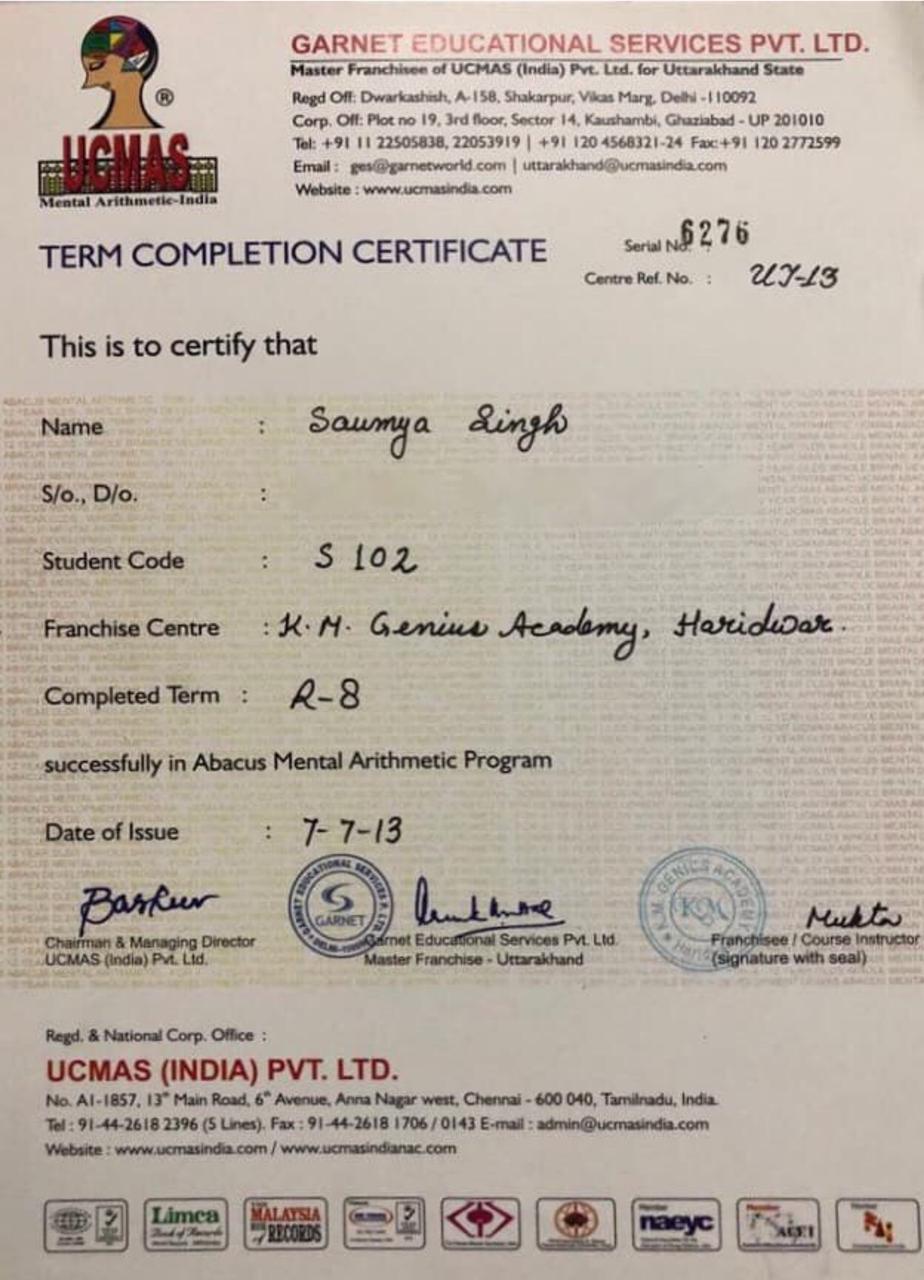 GARNET EDUCATIONAL SERVICES PVT. LTD.
Master Franchisee of UCMAS (India) Pvt. Ltd. for Uttarakhand State
Regd Off: Dwarkashish, A-158, Shakarpur, Vikas Marg, Delhi -110092
Corp. Off: Plot no 19, 3rd floor, Sector 14, Kaushambi, Ghaziabad - UP 201010
Tel: +91 11 22505838, 22053919 | +91 120 4568321-24 Fax:+91 120 2772599
Email : ges@garnetworld.com | uttarakhand@ucmasindia.com
Website : www.ucmasindia.com
®
UCMAS
Mental Arithmetic-India
TERM COMPLETION CERTIFICATE
Serial No. : 6276
Centre Ref. No. :
This is to certify that
Name : Saumya Singh
S/o., D/o. :
Student Code : S 102
Franchise Centre : K.M. Genius Academy, Haridwar.
Completed Term : R-8
successfully in Abacus Mental Arithmetic Program
Date of Issue : 7-7-13
GARNET
K.M. GENICS ACADEMY
KM
Mukta
Chairman & Managing Director
UCMAS (India) Pvt. Ltd.
Garnet Educational Services Pvt. Ltd.
Master Franchise - Uttarakhand
Franchisee / Course Instructor
(signature with seal)
Regd. & National Corp. Office :
UCMAS (INDIA) PVT. LTD.
No. A1-1857, 13th Main Road, 6th Avenue, Anna Nagar west, Chennai - 600 040, Tamilnadu, India.
Tel : 91-44-2618 2396 (5 Lines). Fax : 91-44-2618 1706 / 0143 E-mail : admin@ucmasindia.com
Website : www.ucmasindia.com / www.ucmasindianac.com
Limca
Book of Records
MALAYSIA
of RECORDS
naeyc